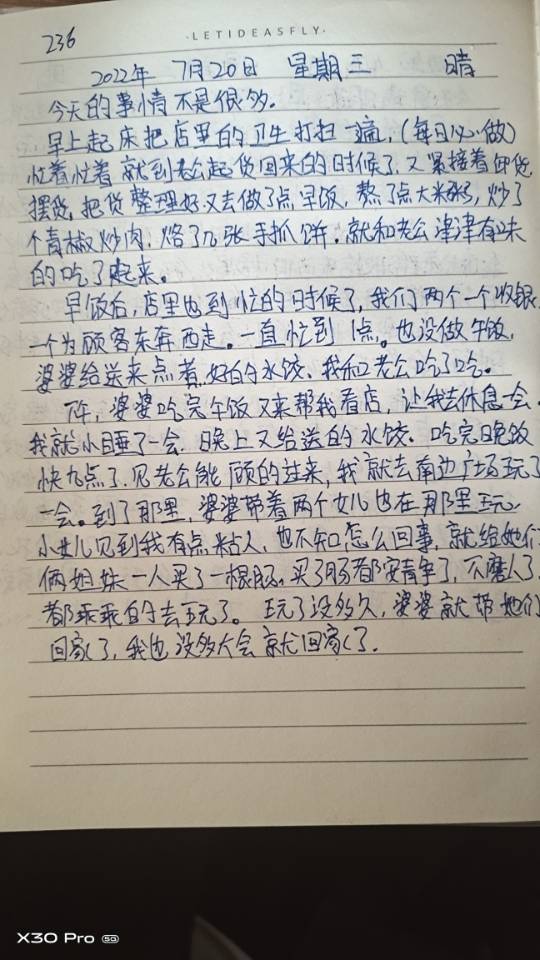 236
·LETIDEASFLY·
2022年 7月20日 星期三 晴
今天的事情不是很多.
早上起床把店里的卫生打扫一遍,(每日必做)
忙着忙着就到老公起货回来的时候了,又紧接着卸货,
摆货,把货整理好又去做了点早饭,熬了点大米粥,炒了
个青椒炒肉,烙了几张手抓饼.就和老公津津有味
的吃了起来。
早饭后,店里也到忙的时候了,我们两个一个收银,
一个为顾客东奔西走。一直忙到1点。也没做午饭,
婆婆给送来点煮好的水饺、我和老公吃了吃。
下午,婆婆吃完午饭又来帮我看店,让我去休息一会.
我就小睡了一会.晚上又给送的水饺.吃完晚饭
快九点了.见老公能顾的过来,我就去南边广场玩了
一会。到了那里,婆婆带着两个女儿也在那里玩,
小女儿见到我有点粘人,也不知怎么回事,就给她们
俩姐妹一人买了一根肠.买了肠都安静了,不磨人了.
都乖乖的去玩了。玩了没多久,婆婆就带她们
回家了,我也没多大会就回家了.
X30 Pro 5G